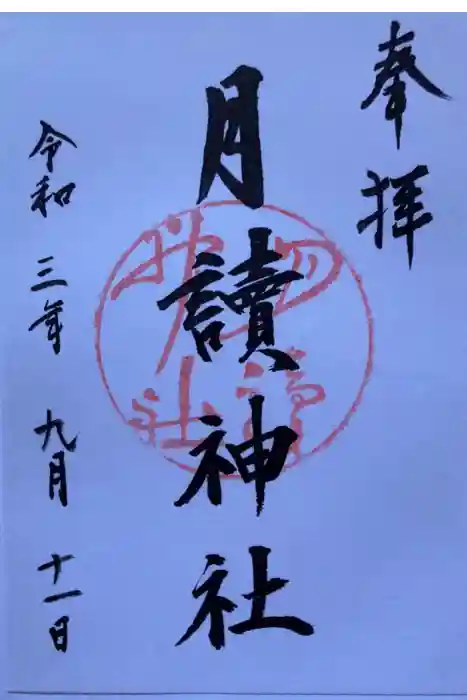 奉拝
月讀神社
令和三年九月十一日